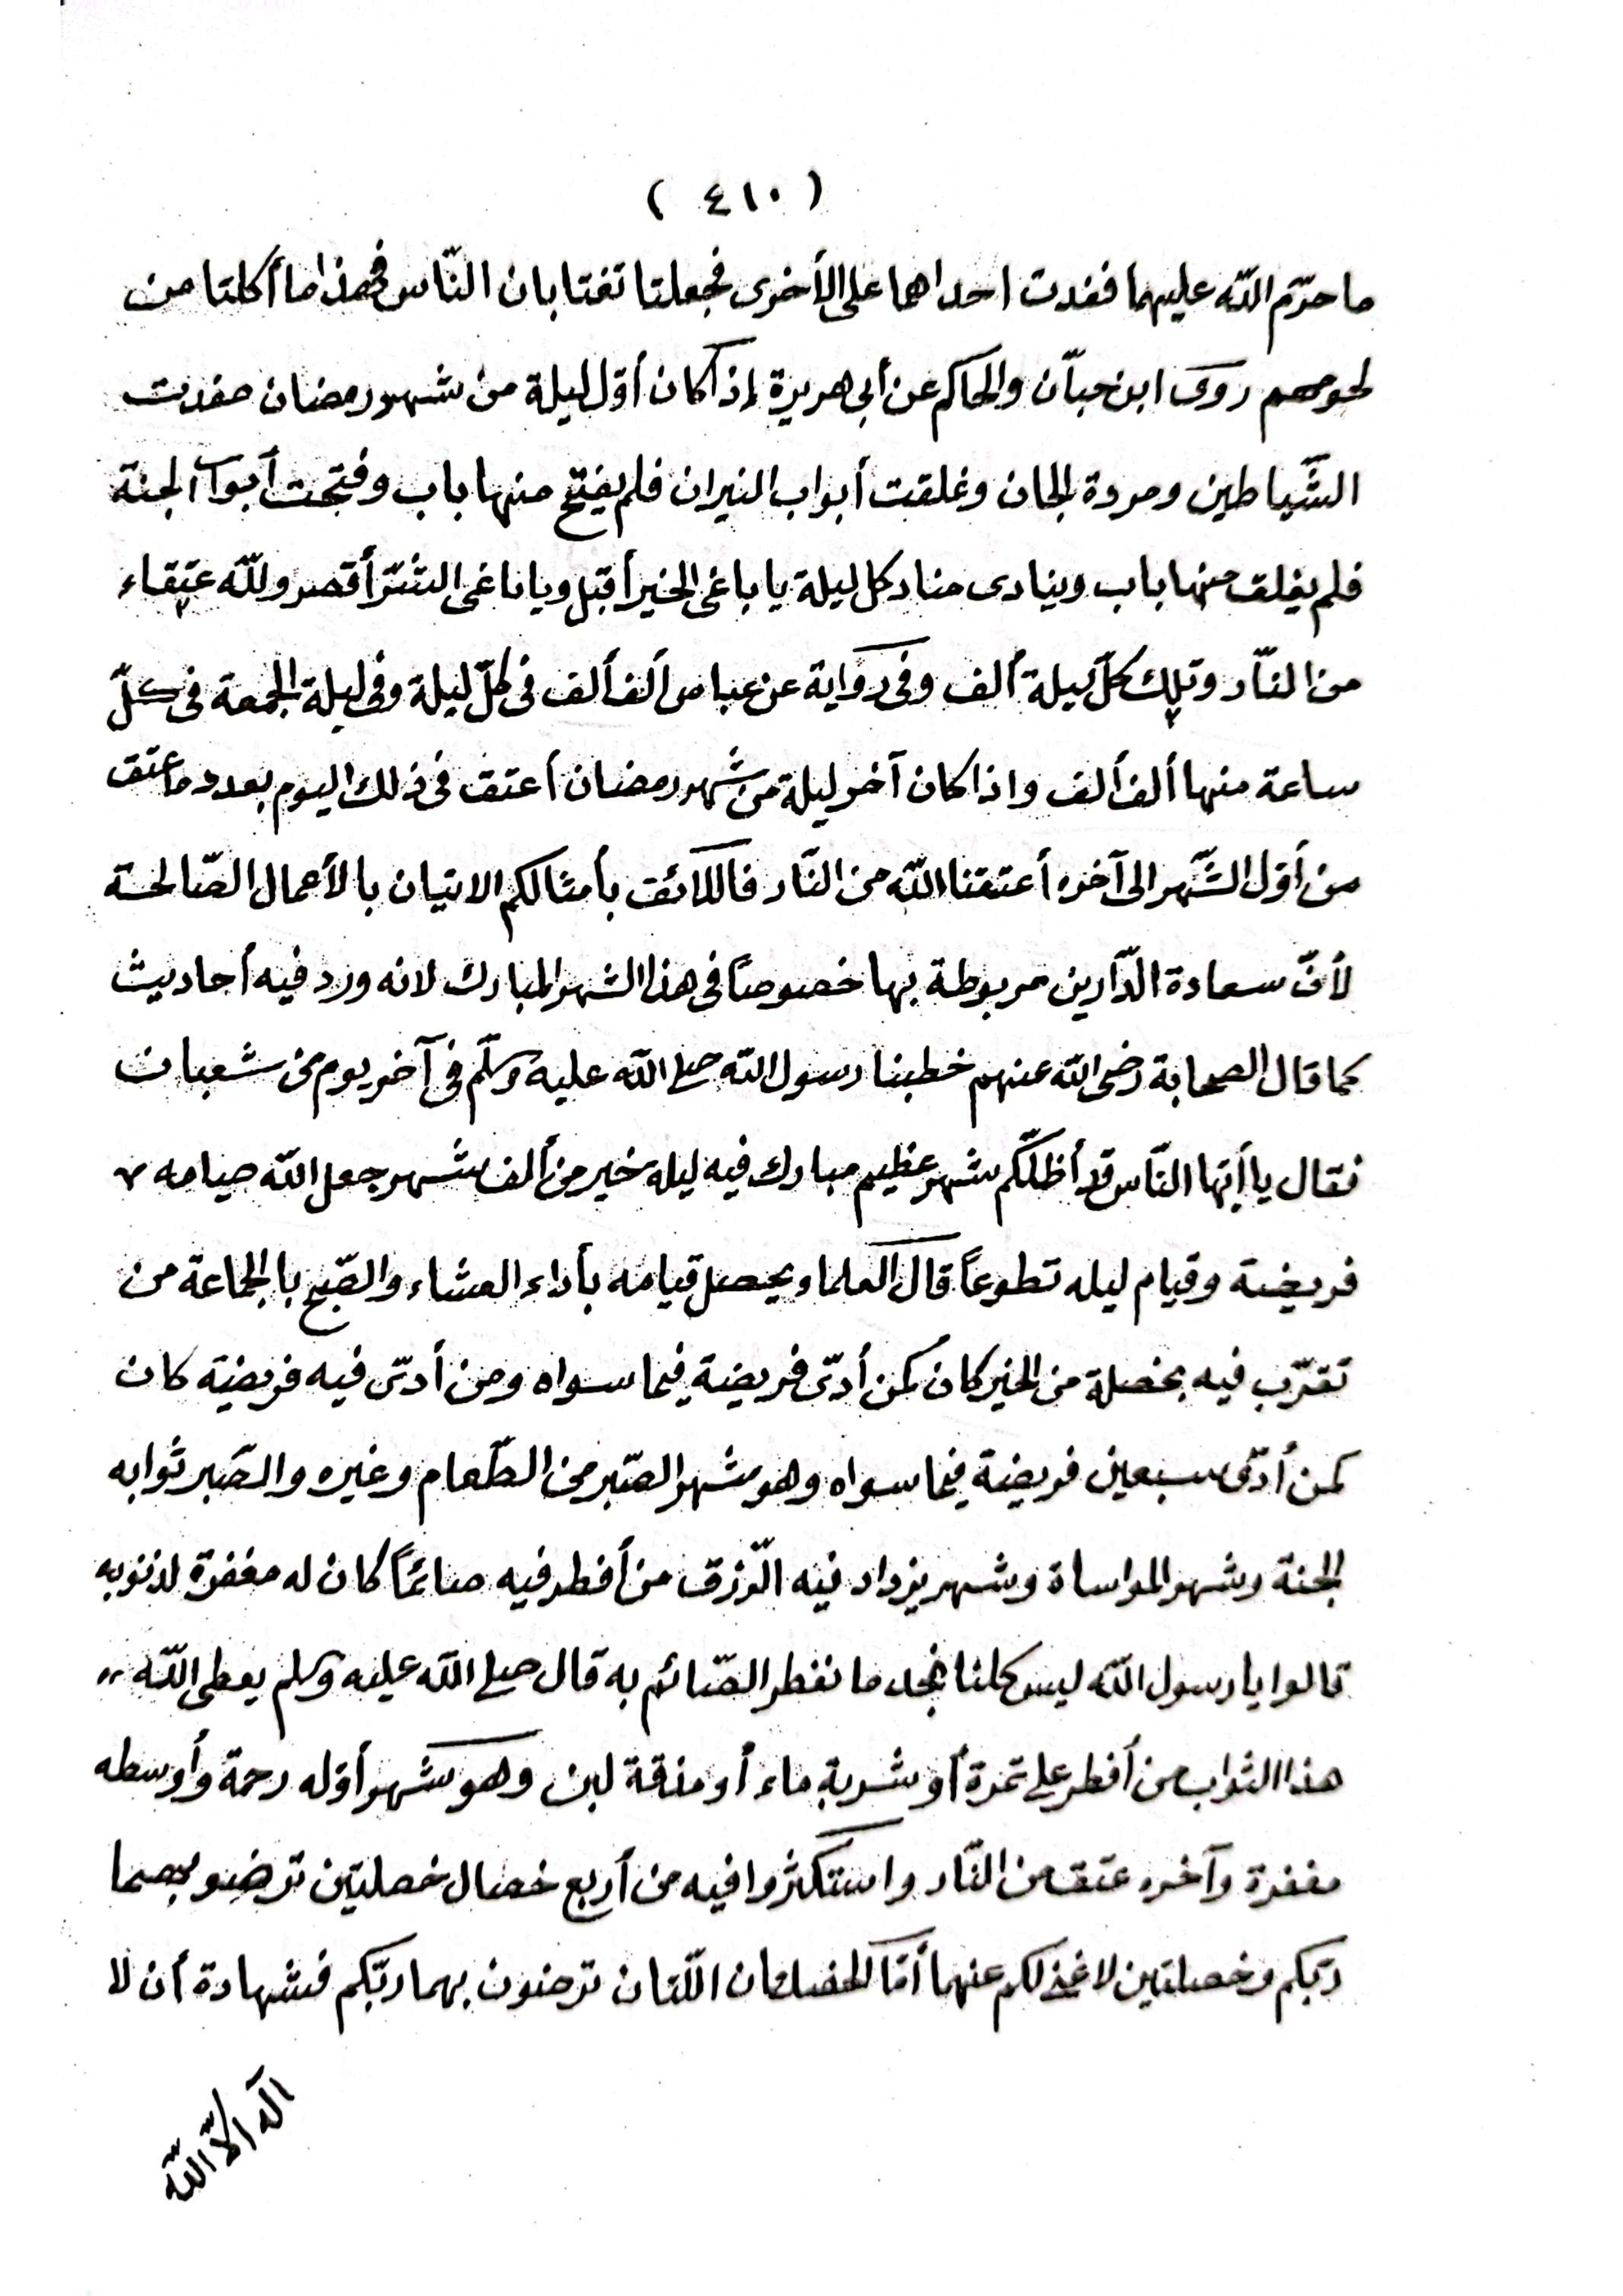 ( ٤١٠ )
ما حرّم اللّه عليهما فغدت احداها على الأخرى فجعلتا تغتابان النّاس فهذا ما أكلتا من
لحومهم روى ابن حبّان والحاكم عن أبى هريرة إذا كان أوّل ليلة من شهر رمضان صفدت
الشّياطين ومردة الجان وغلقت أبواب النيران فلم يفتح منها باب وفتحت أبواب الجنة
فلم يغلق منها باب وينادى مناد كل ليلة يا باغى الخير أقبل ويا باغى الشرّ أقصر وللّه عتقاء
من النّار وتلك كلّ ليلة ألف وفى رواية عن عباس ألف ألف فى كلّ ليلة وفى ليلة الجمعة فى كلّ
ساعة منها ألف ألف واذا كان آخر ليلة من شهر رمضان أعتق فى ذلك اليوم بعدد ما عتق
من أوّل الشّهر الى آخره أعتقنا اللّه من النّار فاللائق بأمثالكم الاتيان بالأعمال الصّالحة
لأنّ سعادة الدّارين مربوطة بها خصوصاً فى هذا الشهر المبارك لانه ورد فيه أحاديث
كما قال الصحابة رضى اللّه عنهم خطبنا رسول اللّه صلى اللّه عليه وسلّم فى آخر يوم من شعبان
فقال يا أيّها النّاس قد أظلّكم شهر عظيم مبارك فيه ليلة خير من ألف شهر جعل اللّه صيامه
فريضة وقيام ليله تطوعاً قال العلماء ويحصل قيامه بأداء العشاء والصّبح بالجماعة من
تقرّب فيه بخصلة من الخير كان كمن أدّى فريضة فيما سواه ومن أدّى فيه فريضة كان
كمن أدّى سبعين فريضة فيما سواه وهو شهر الصّبر من الطّعام وغيره والصّبر ثوابه
الجنة وشهر المواساة وشهر يزداد فيه الرّزق من أفطر فيه صائمًا كان له مغفرة لذنوبه
قالوا يا رسول اللّه ليس كلنا نجد ما نفطر الصّائم به قال صلى اللّه عليه وسلم يعطى اللّه
هذا الثواب من أفطر على تمرة أو شربة ماء أو مذقة لبن وهو شهر أوّله رحمة وأوسطه
مغفرة وآخره عتق من النّار واستكثروا فيه من أربع خصال خصلتين ترضو بهما
ربّكم وخصلتين لا غنى لكم عنهما أمّا الخصلتان اللّتان ترضون بهما ربّكم فشهادة أن لا
اله الاّ اللّه